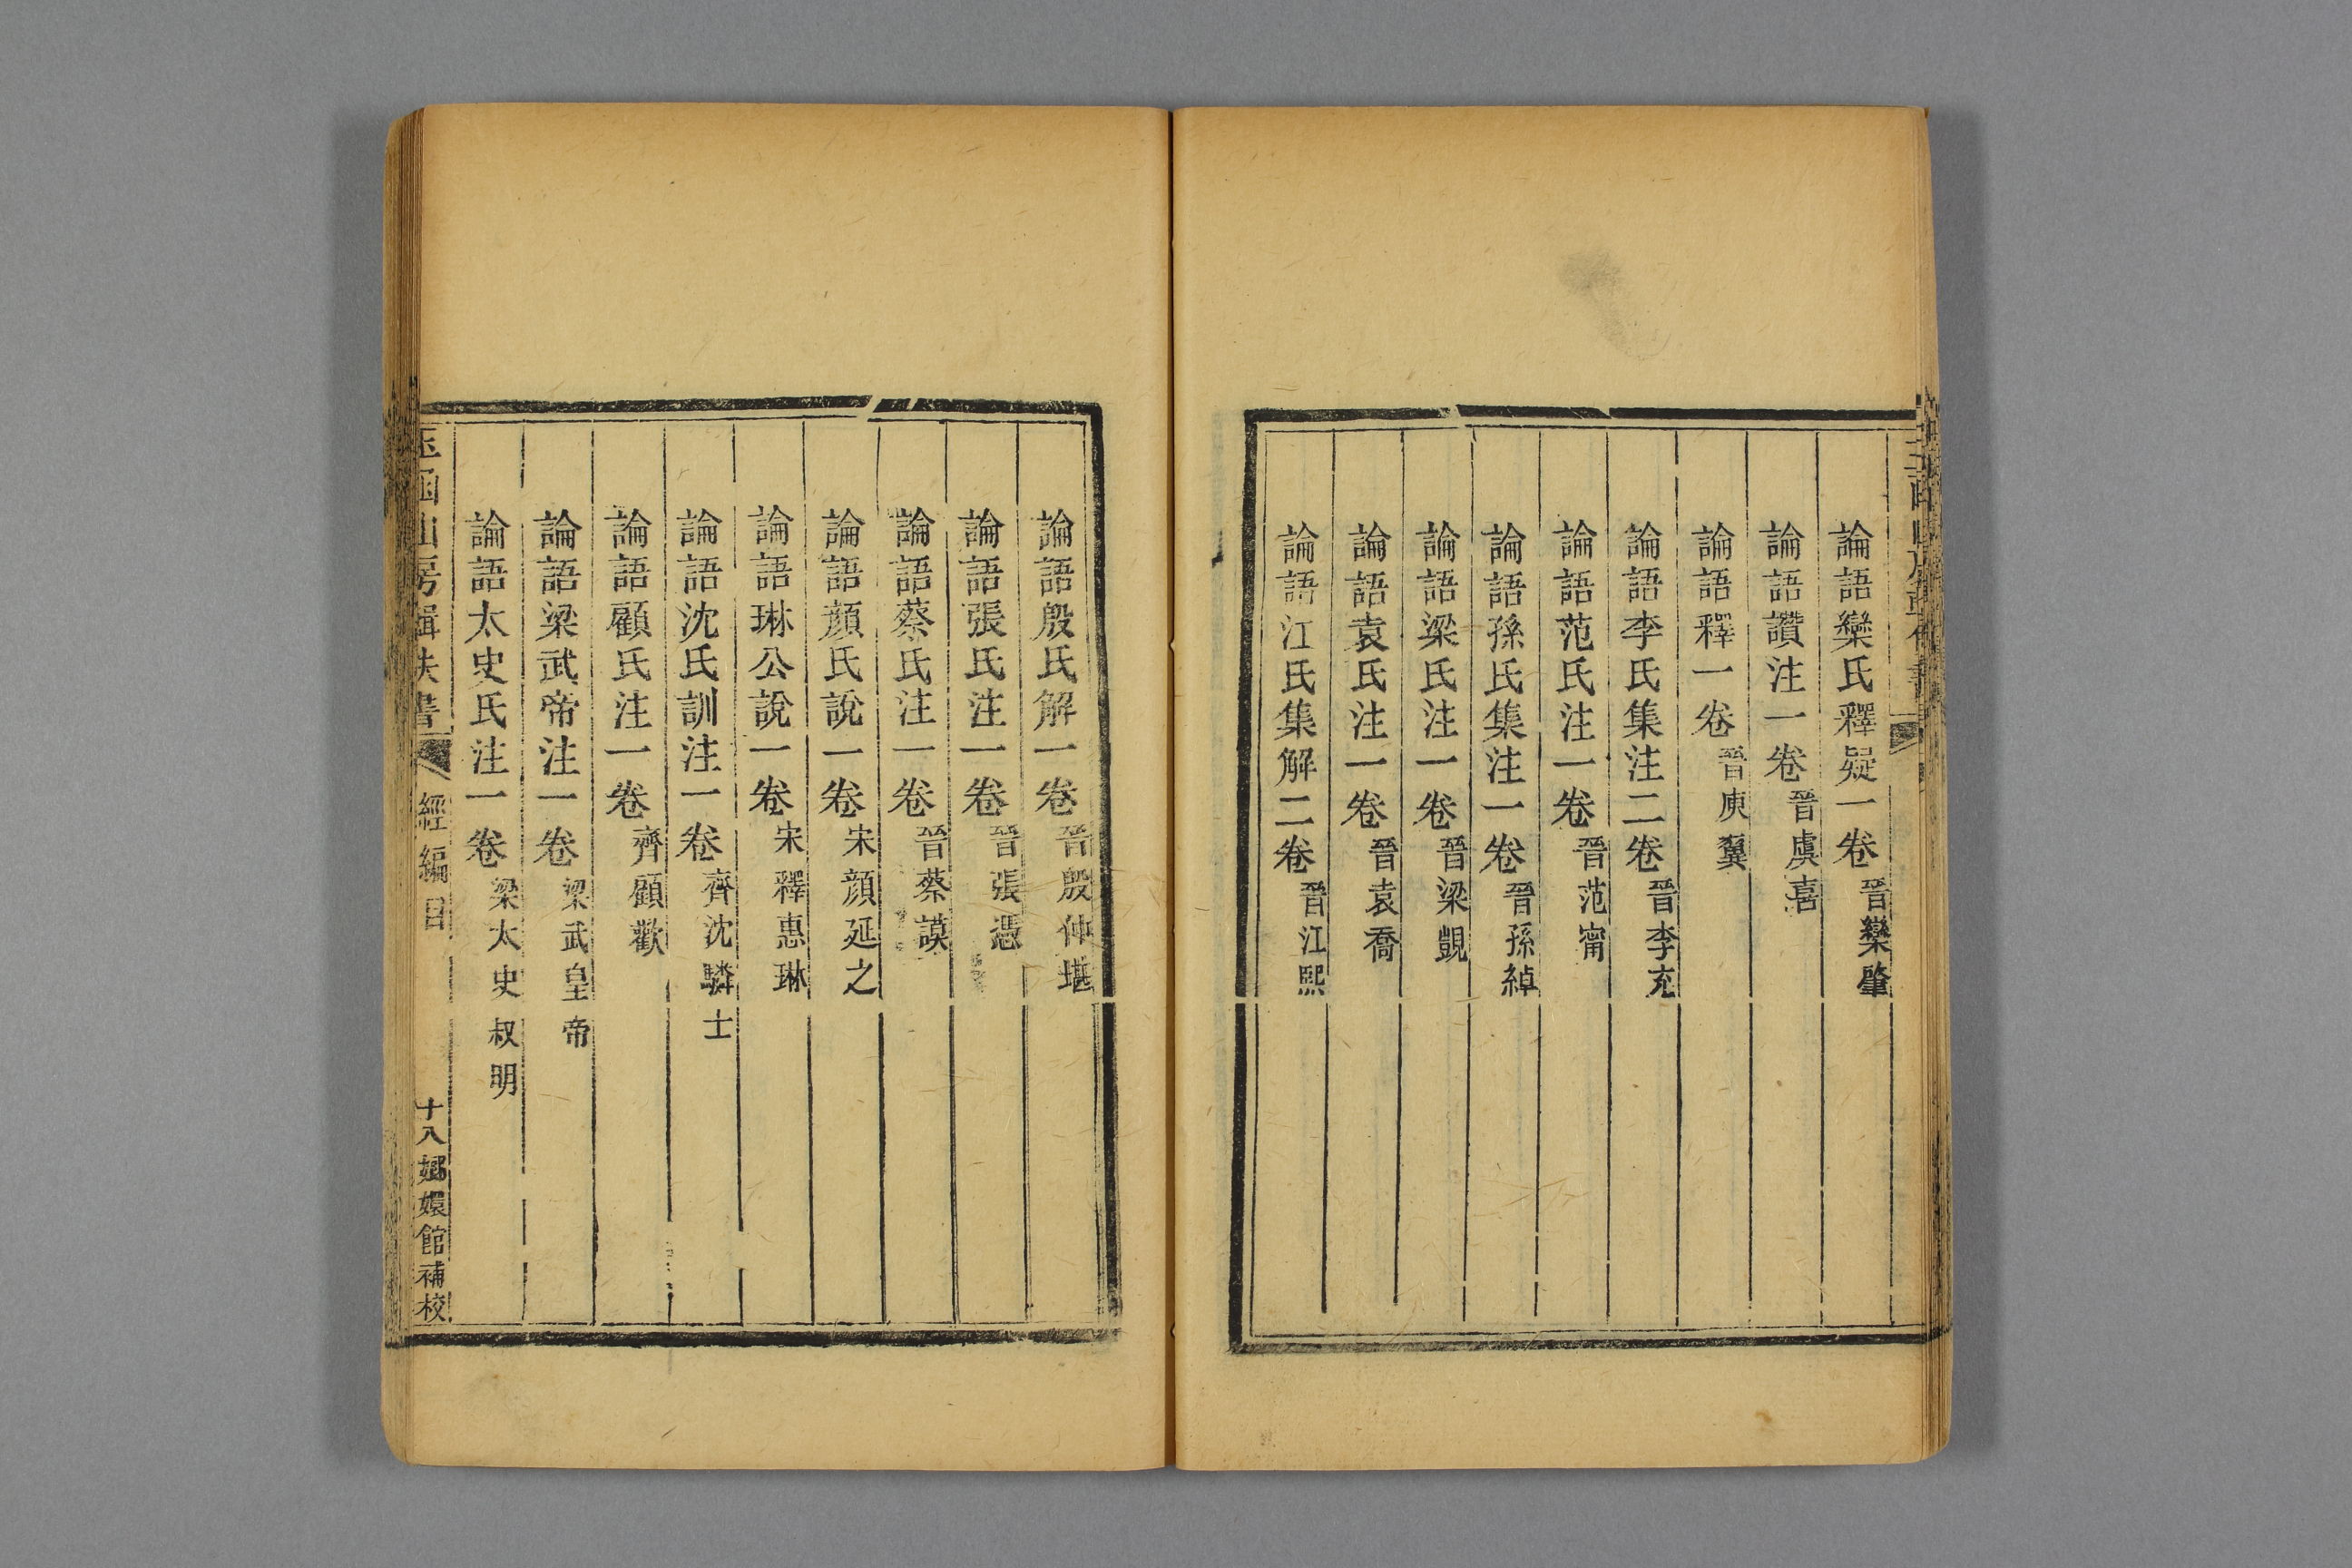 論語欒氏釋疑一卷晉欒肇
論語讚注一卷晉虞喜
論語釋一卷晉庾翼
論語李氏集注二卷晉李充
論語范氏注一卷晉范甯
論語孫氏集注一卷晉孫綽
論語梁氏注一卷晉梁覬
論語袁氏注一卷晉袁喬
論語江氏集解二卷晉江熙
論語殷氏解一卷晉殷仲堪
論語張氏注一卷晉張憑
論語蔡氏注一卷晉蔡謨
論語顏氏說一卷宋顏延之
論語琳公說一卷宋釋惠琳
論語沈氏訓注一卷齊沈驎士
論語顧氏注一卷齊顧歡
論語梁武帝注一卷梁武皇帝
論語太史氏注一卷梁太史叔明
玉函山房輯佚書 經編目 十八 嫏嬛館補校